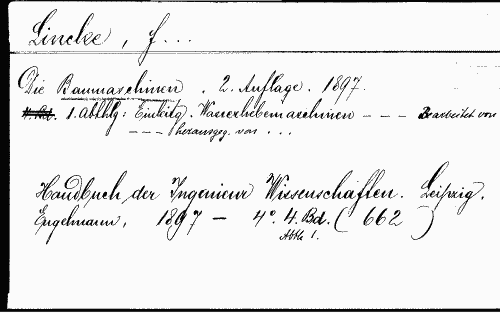 Lincke, f...
Die Baumaschinen. 2. Auflage. 1897.
4. Bd. 1. Abthlg: Einleitg. Wasserhebemaschinen --- Bearbeitet von
--- herausgeg. von ...
Handbuch der Ingenieur Wissenschaften. Leipzig.
Engelmann, 1897 – 4°. 4. Bd. ( 662 )
Abth 1.